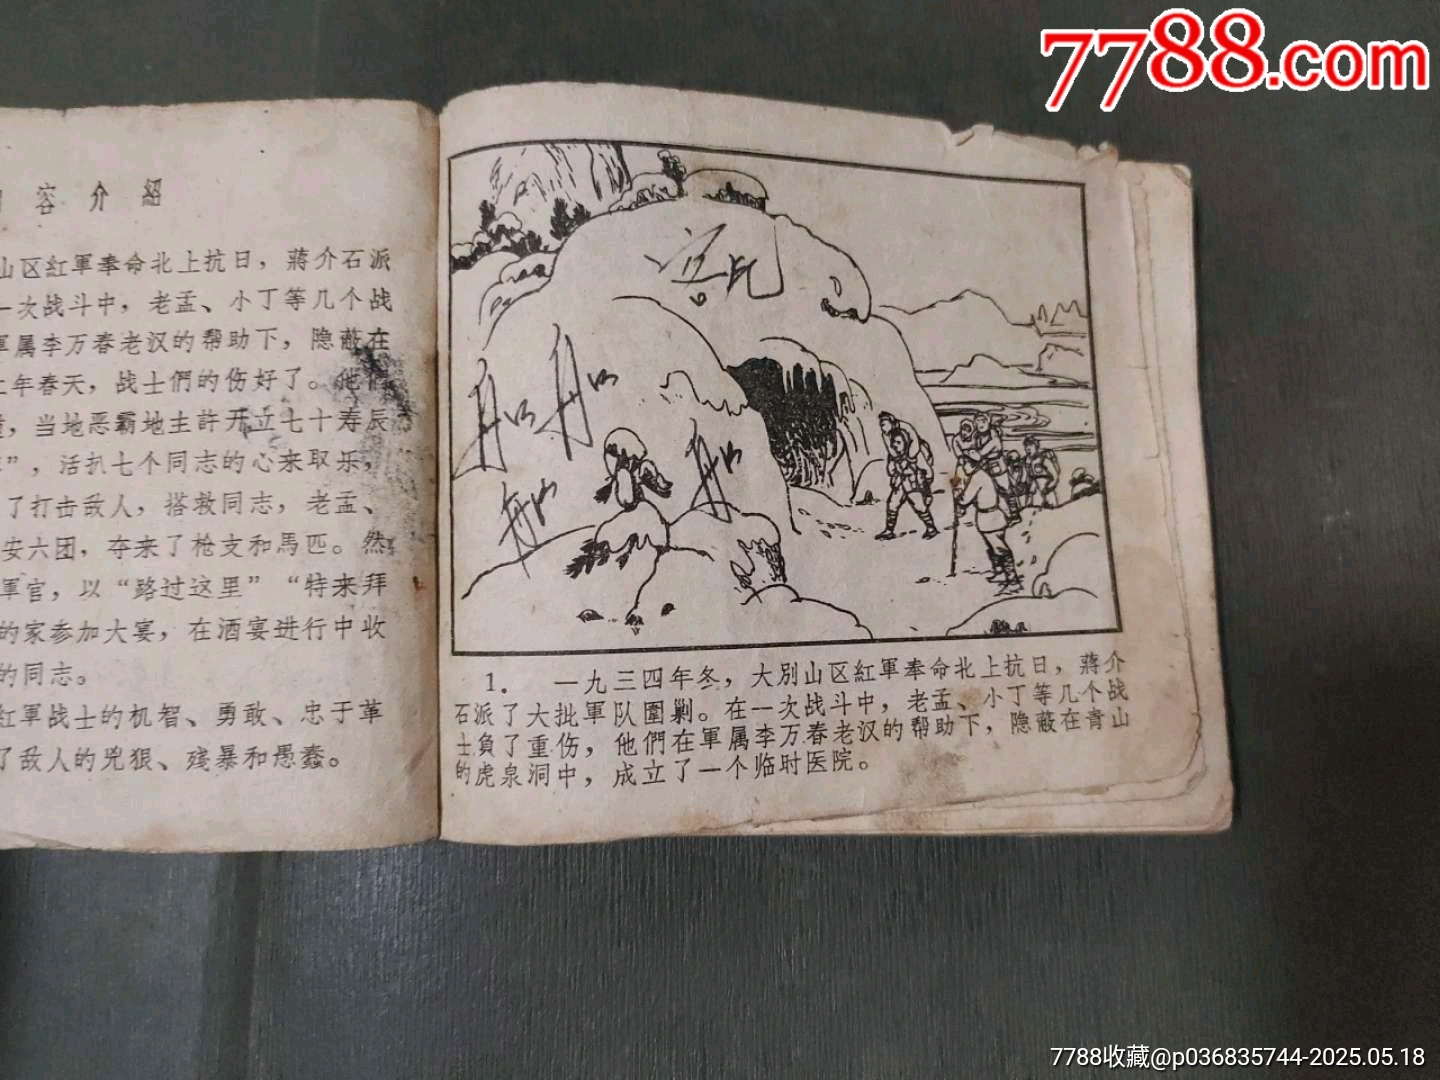 7788.com
容介紹
山区紅軍奉命北上抗日，蔣介石派
一次战斗中，老孟、小丁等几个战
軍属李万春老汉的帮助下，隐蔽在
年春天，战士們的伤好了。他們
，当地恶霸地主許开立七十寿辰
”，活扒七个同志的心来取乐，
了打击敌人，搭救同志，老孟、
安六团，夺来了枪支和馬匹。然
軍官，以“路过这里”“特来拜
的家参加大宴，在酒宴进行中收
的同志。
紅軍战士的机智、勇敢、忠于革
了敌人的兇狠、殘暴和愚蠢。
1. 一九三四年冬，大别山区紅軍奉命北上抗日，蔣介
石派了大批軍队圍剿。在一次战斗中，老孟、小丁等几个战
士負了重伤，他們在軍属李万春老汉的帮助下，隐蔽在青山
的虎泉洞中，成立了一个临时医院。
7788收藏@p036835744-2025.05.18